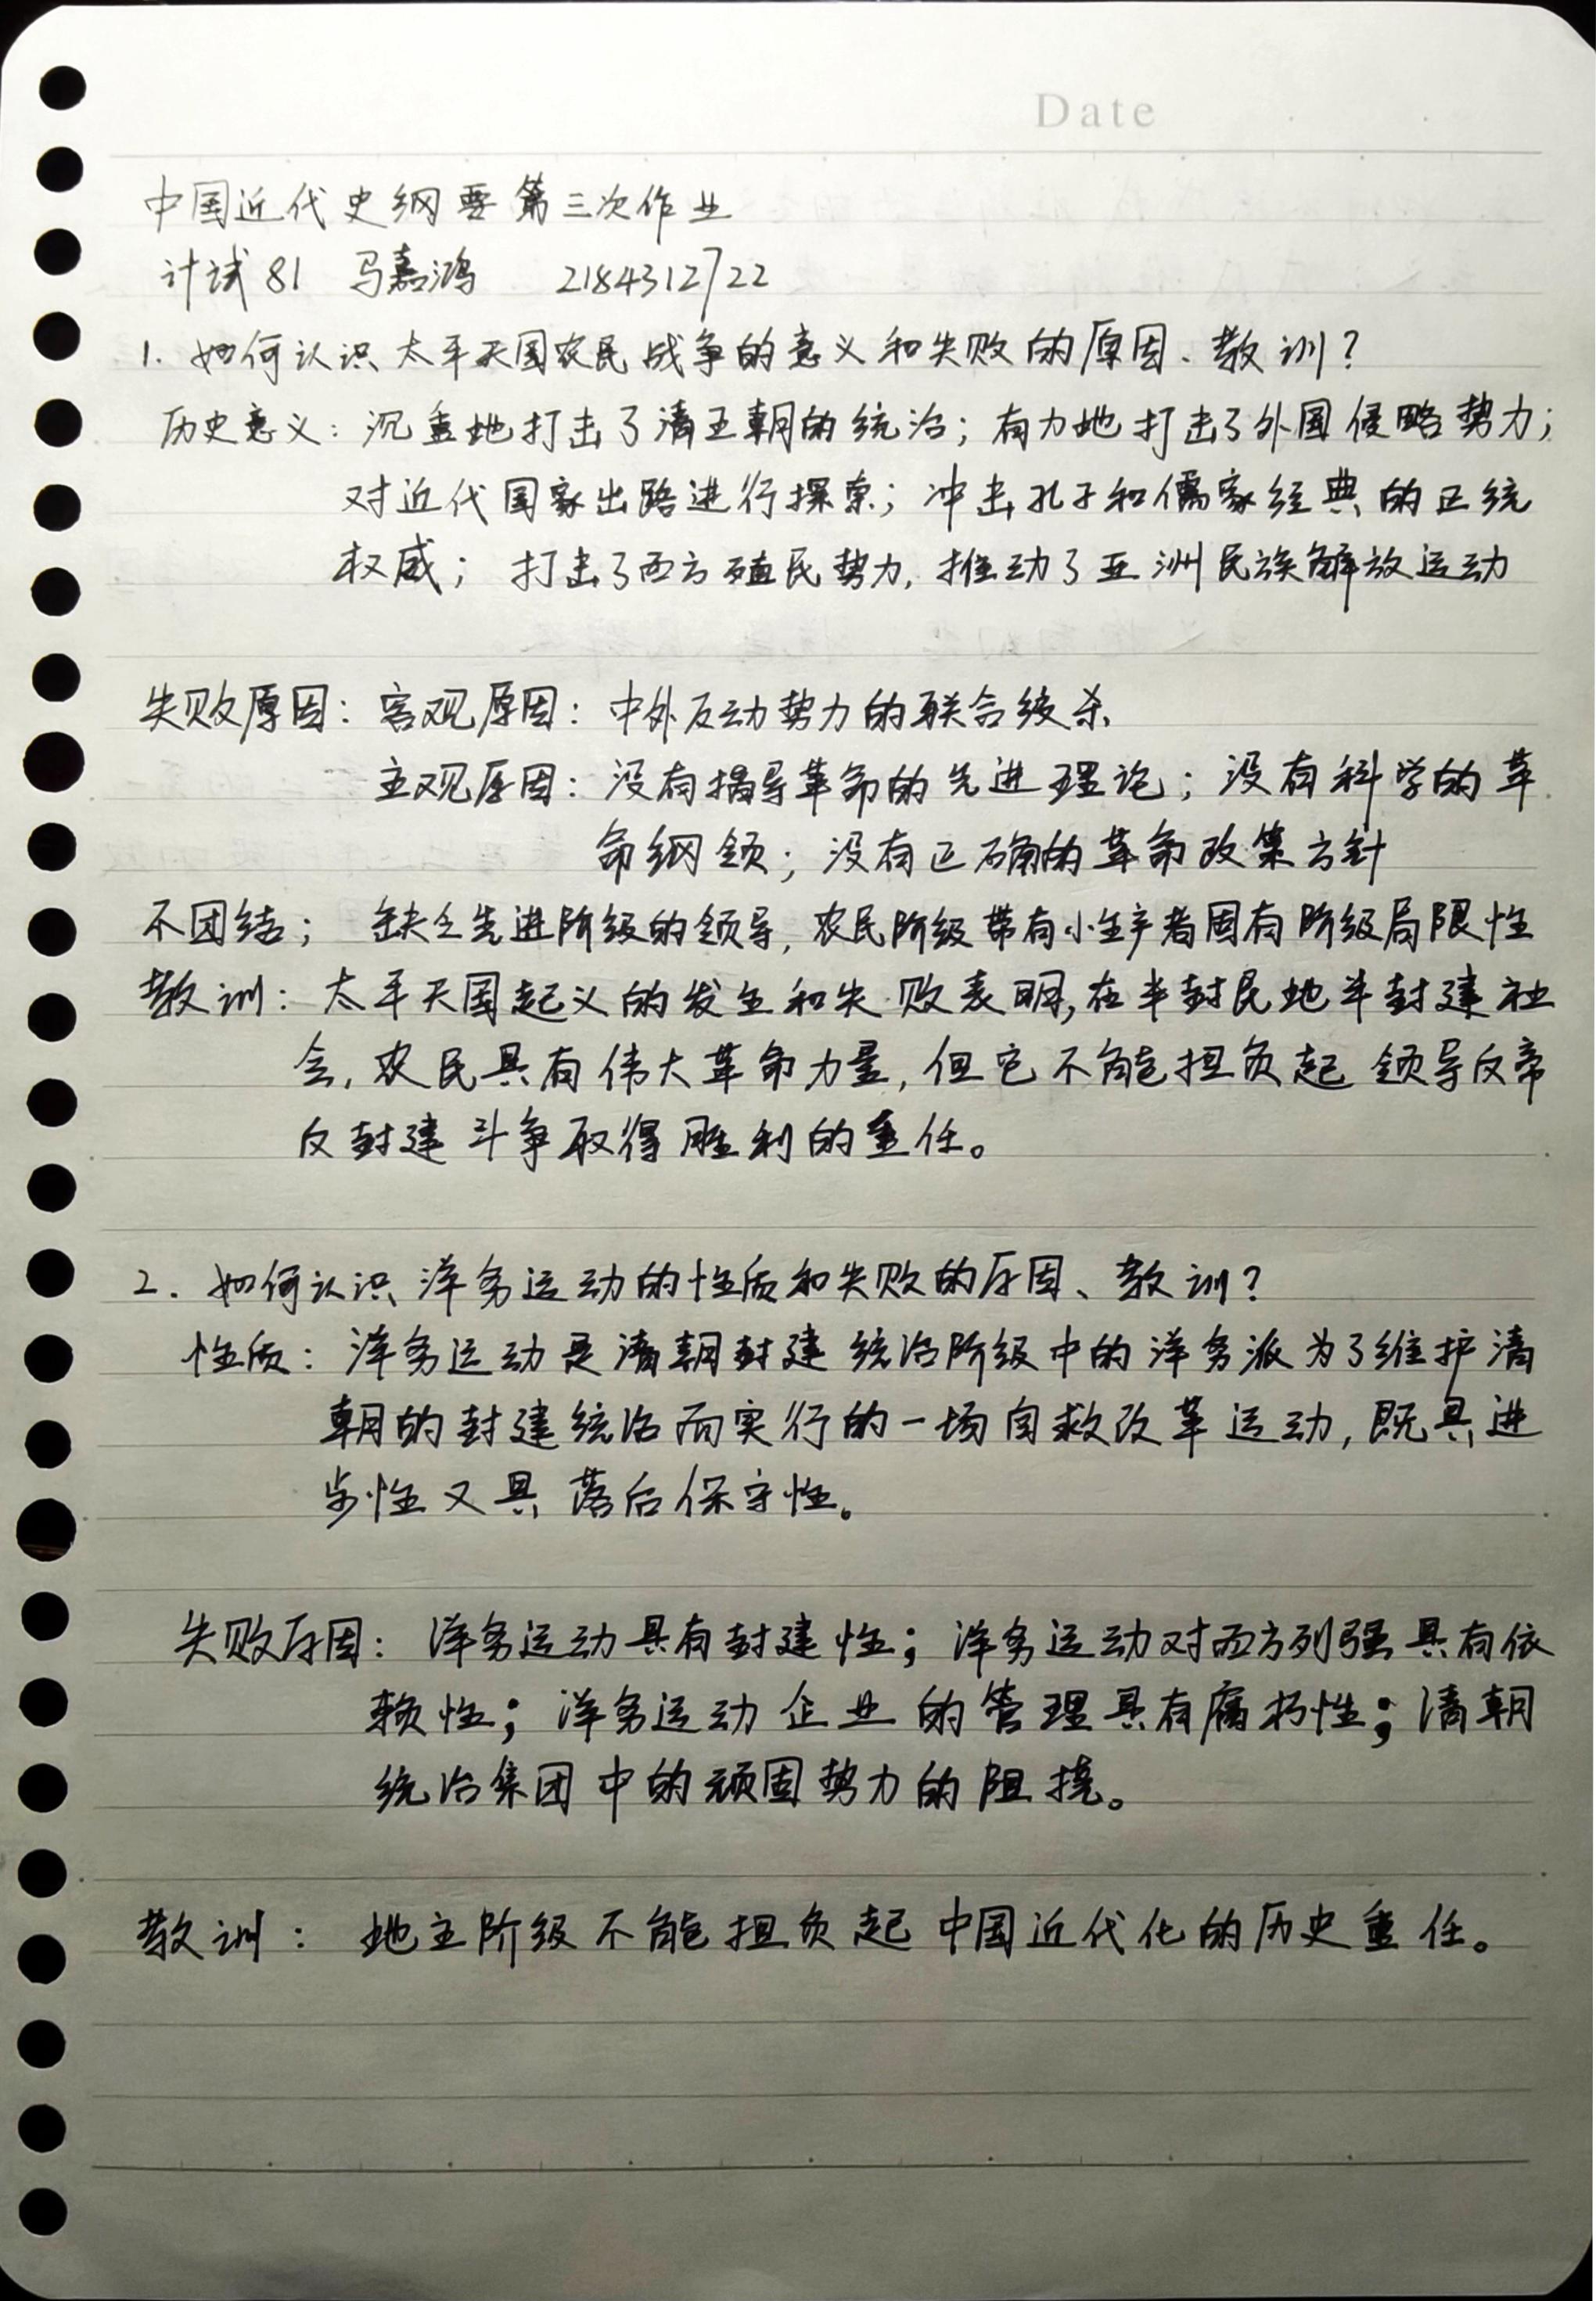 Date
中国近代史纲要第三次作业
计试81 马嘉鸿 2184312722
1. 如何认识太平天国农民战争的意义和失败的原因、教训?
历史意义: 沉重地打击了清王朝的统治; 有力地打击了外国侵略势力;
对近代国家出路进行探索; 冲击孔子和儒家经典的正统
权威; 打击了西方殖民势力, 推动了亚洲民族解放运动
失败原因: 客观原因: 中外反动势力的联合绞杀
主观原因: 没有指导革命的先进理论; 没有科学的革
命纲领; 没有正确的革命政策方针
不团结; 缺乏先进阶级的领导, 农民阶级带有小生产者固有阶级局限性
教训: 太平天国起义的发生和失败表明,在半封民地半封建社
会, 农民具有伟大革命力量, 但它不能担负起领导反帝
反封建斗争取得胜利的重任。
2. 如何认识洋务运动的性质和失败的原因、教训?
性质: 洋务运动是清朝封建统治阶级中的洋务派为了维护清
朝的封建统治而实行的一场自救改革运动, 既具进
步性又具落后保守性。
失败原因: 洋务运动具有封建性; 洋务运动对西方列强具有依
赖性; 洋务运动企业的管理具有腐朽性; 清朝
统治集团中的顽固势力的阻挠。
教训: 地主阶级不能担负起中国近代化的历史重任。